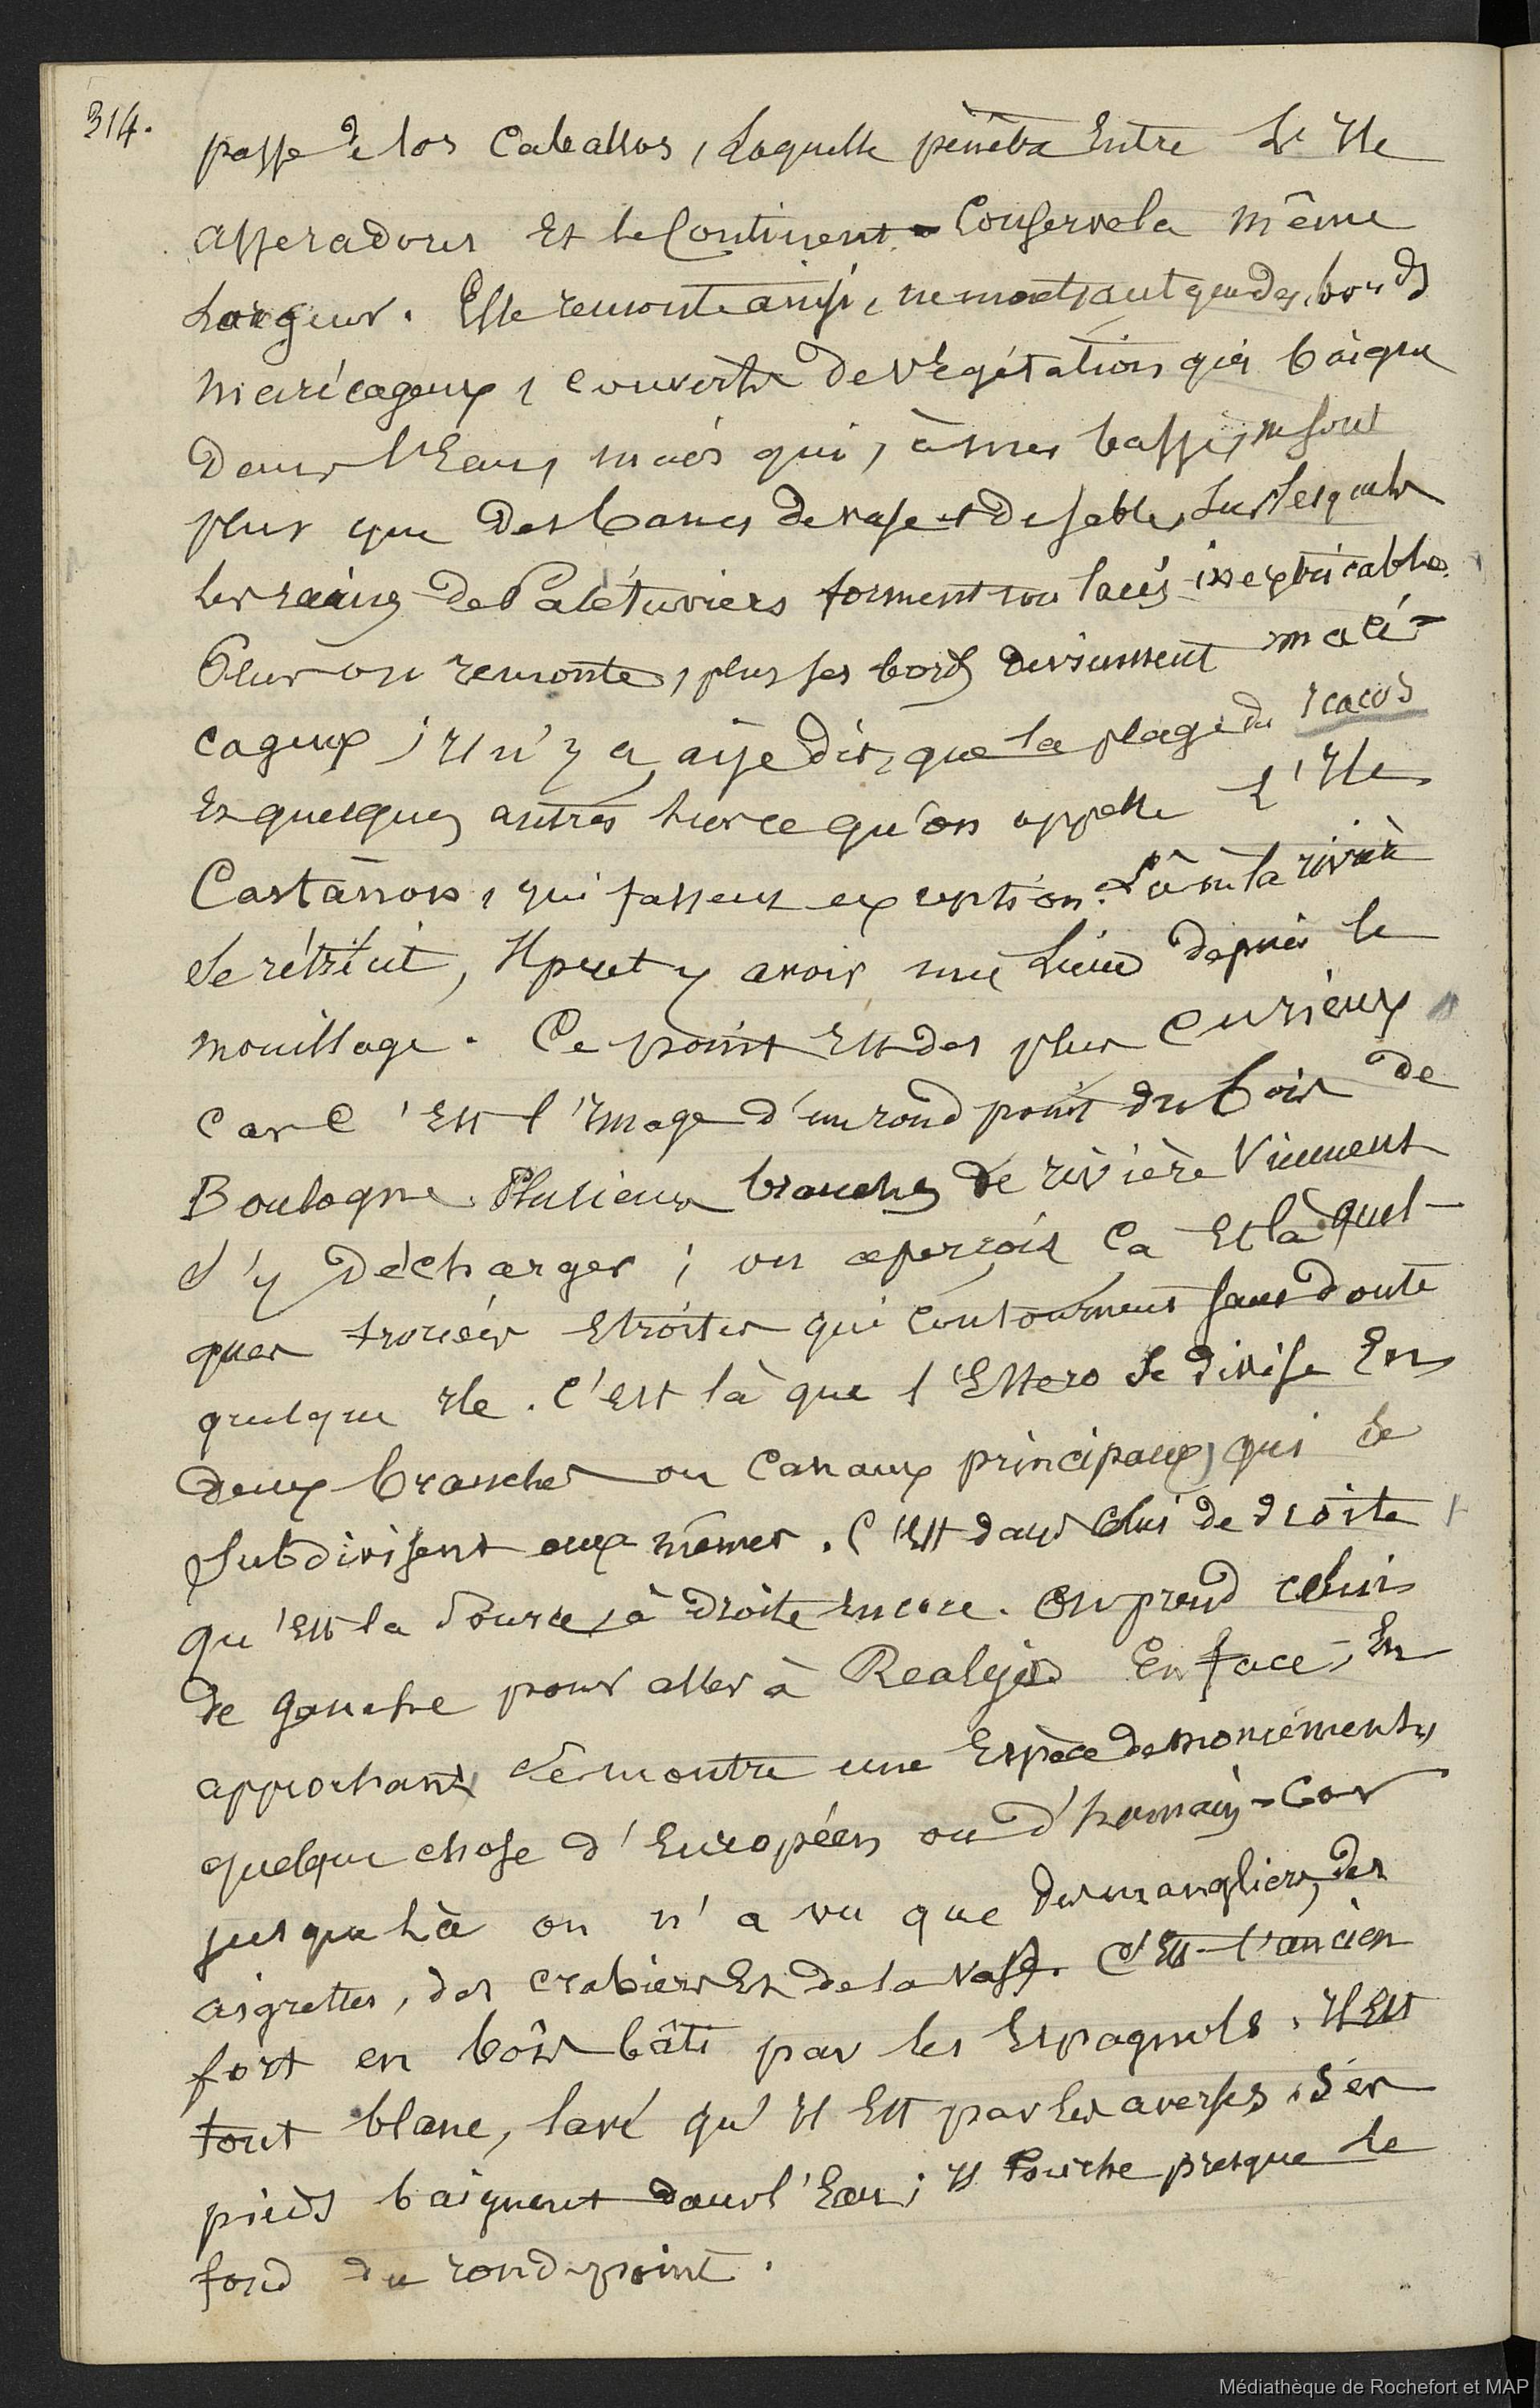 314.
passe de los Caballos, laquelle pénètre Entre l'Ile
asseradores Et le Continent conserve la même
Largeur. Elle remonte ainsi, ne montrant que des bords
marécageux, couverts de végétation qui baigne
Dans l'Eau, mais qui, à mer basse, ne sont
plus que des bancs de vase et de sable, sur lesquels
les racines de Palétuviers forment un lacis inextricable.
Plus on remonte, plus ses bords deviennent maré-
cageux ; Il n'y a, ai je dit, que la plage du Icacos
Et quelques autres sur ce qu'on appelle l'Ile
Castañon, qui fassent exception. Là où la rivière
Se rétrécit, Il peut y avoir une Lieue depuis le
mouillage. Ce point Est des plus curieux
Car C'Est l'Image d'un rond point du bois de
Boulogne. Plusieurs branches de rivière Viennent
s'y Décharger ; on aperçoit ça Et là quel-
ques trouées Etroites qui contournent sans doute
quelque Ile. C'Est là que l'Estero se divise En
deux branches ou Canaux principaux, qui se
subdivisent eux mêmes. C'Est dans celui de droite
qu'Est la Source, à droite Encore. On prend celui
de gauche pour aller à Realejo. En face, En
approchant Se montre une Espèce de monument,
quelque chose d'Européen ou d'humain - Car
jusque là on n'a vu que des mangliers, des
aigrettes, des crabiers Et de la vase. C'Est l'ancien
fort en bois bâti par les Espagnols. Il Est
tout blanc, lavé qu'Il Est par les averses. Ses
pieds baignent dans l'Eau ; Il touche presque le
fond du rond-point.
Médiathèque de Rochefort et MAP